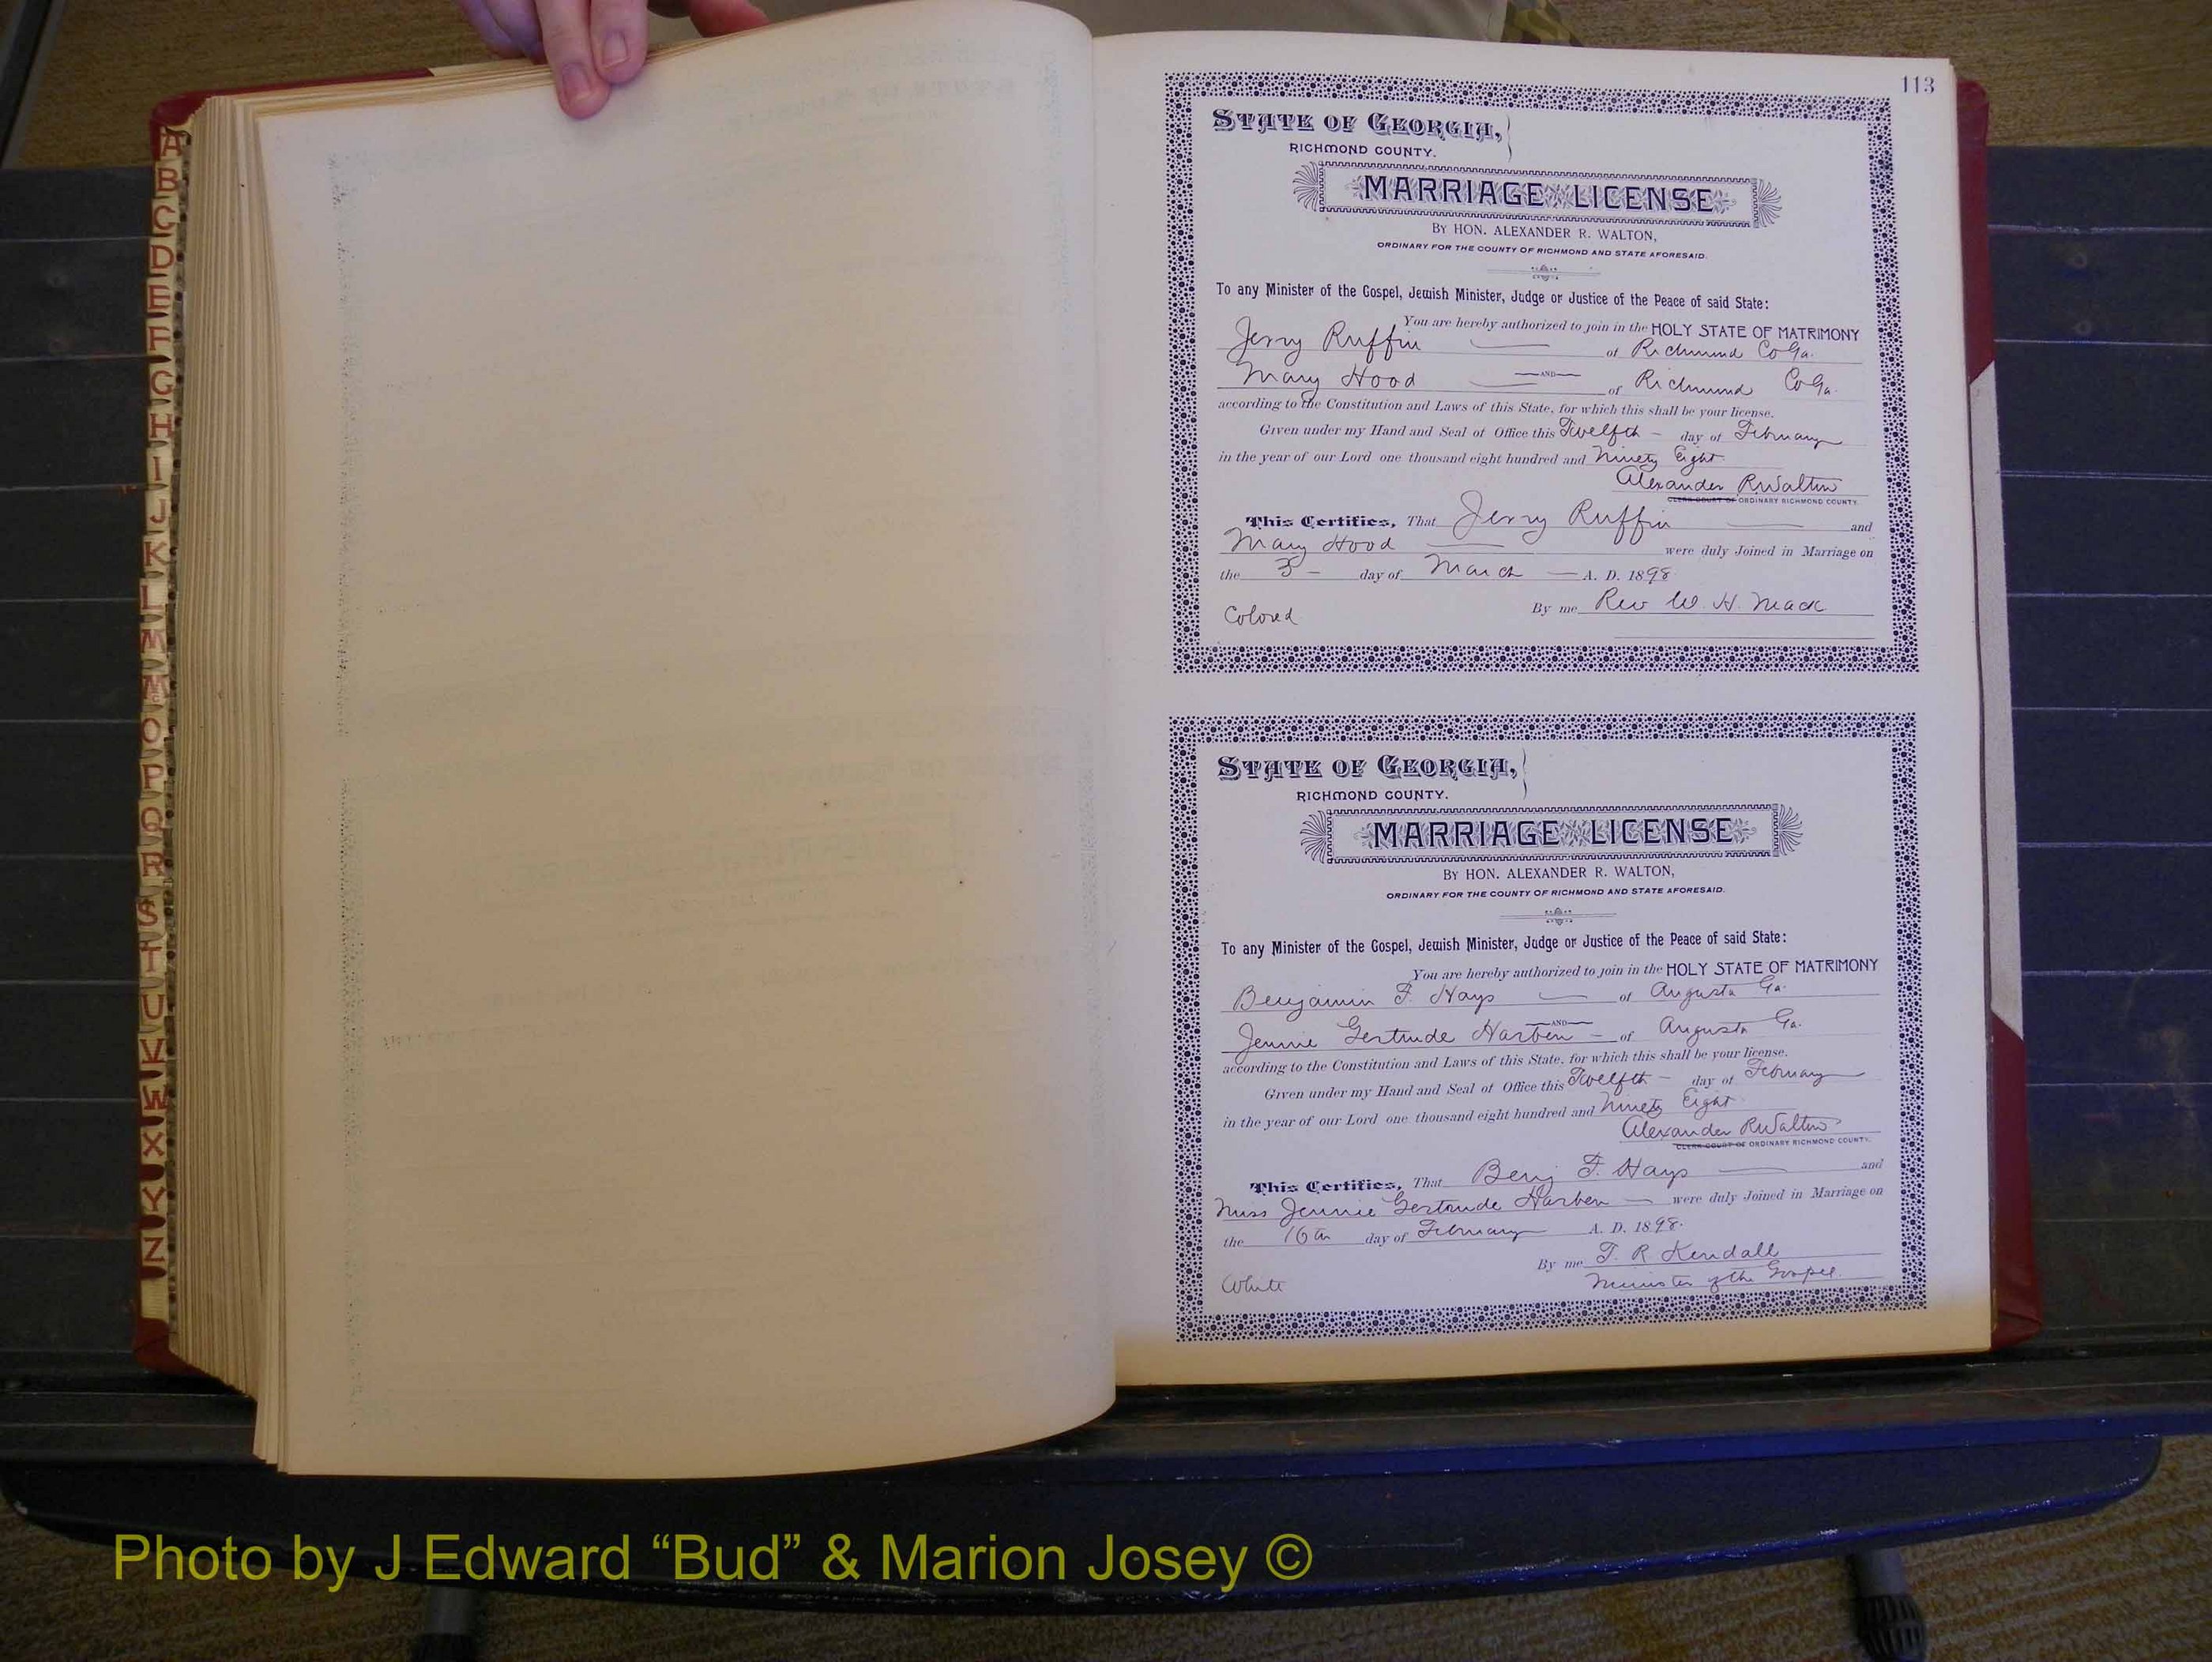 A
B
C
D
E
F
G
H
I
J
K
L
M
Mc
O
P
Q
R
S
T
U
V
W
X
Y
Z
113
STATE OF GEORGIA,
RICHMOND COUNTY.
MARRIAGE LICENSE
BY HON. ALEXANDER R. WALTON,
ORDINARY FOR THE COUNTY OF RICHMOND AND STATE AFORESAID.
To any Minister of the Gospel, Jewish Minister, Judge or Justice of the Peace of said State:
You are hereby authorized to join in the HOLY STATE OF MATRIMONY
Jerry Ruffin of Richmond Co Ga.
AND
Mary Hood of Richmond Co Ga.
according to the Constitution and Laws of this State, for which this shall be your license.
Given under my Hand and Seal of Office this Twelfth day of February
in the year of our Lord one thousand eight hundred and Ninety Eight
Alexander R Walton
CLERK COURT OF ORDINARY RICHMOND COUNTY.
This Certifies, That Jerry Ruffin and
Mary Hood were duly Joined in Marriage on
the day of March A. D. 1898
By me Rev W. H. Mack
Colored
STATE OF GEORGIA,
RICHMOND COUNTY.
MARRIAGE LICENSE
BY HON. ALEXANDER R. WALTON,
ORDINARY FOR THE COUNTY OF RICHMOND AND STATE AFORESAID.
To any Minister of the Gospel, Jewish Minister, Judge or Justice of the Peace of said State:
You are hereby authorized to join in the HOLY STATE OF MATRIMONY
Benjamin F. Hays of Augusta Ga.
AND
Jennie Gertrude Harben of Augusta Ga.
according to the Constitution and Laws of this State, for which this shall be your license.
Given under my Hand and Seal of Office this Twelfth day of February
in the year of our Lord one thousand eight hundred and Ninety Eight
Alexander R Walton
CLERK COURT OF ORDINARY RICHMOND COUNTY.
This Certifies, That Benj F. Hays and
Miss Jennie Gertrude Harben were duly Joined in Marriage on
the 16th day of February A. D. 1898.
By me T. R Kendall
Minister of the Gospel.
White
Photo by J Edward “Bud” & Marion Josey ©